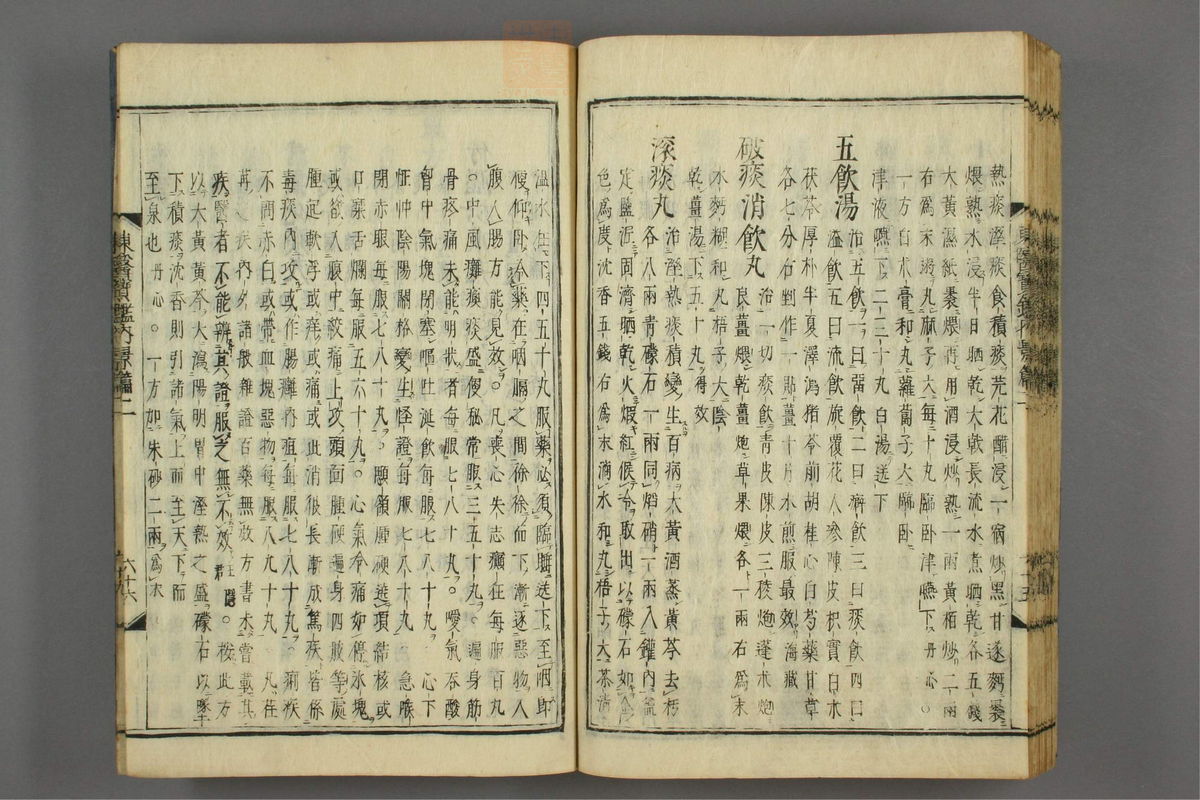 熱痰濕痰食積痰芫花醋浸一宿炒黑甘遂麪裹
煨熟水浸半日晒乾大戟長流水煮晒乾各五錢
大黃濕紙裹煨再用酒浸炒熟一兩黃栢炒二兩
右爲末粥丸麻子大每十丸臨卧津嚥下丹心○
一方白朮膏和丸蘿葍子大臨卧
津液嚥下二三十丸白湯送下
五飮湯治五飮一曰留飮二曰癖飮三曰痰飮四曰
溢飮五曰流飮旅覆花人參陳皮枳實白朮
茯苓厚朴半夏澤瀉猪苓前胡桂心白芍藥甘草
各七分右剉作一貼薑十片水煎服最效海藏
破痰消飮丸治一切痰飮靑皮陳皮三稜炮蓬朮炮
良薑煨乾薑炮草果煨各一兩右爲末
水麪糊和丸梧子大陰
乾薑湯下五十丸得效
滚痰丸治濕熱痰積變生百病大黃酒蒸黃芩去朽
各八兩靑礞石一兩同焰硝一兩入鑵內盖
定鹽泥固濟晒乾火煆紅候冷取出以礞石如金
色爲度沈香五錢右爲末滴水和丸梧子大茶淸
溫水任下四五十丸服藥必須臨睡送下至咽卽
便仰卧令藥在咽膈之間徐徐而下漸逐惡物入
腹入腸方能見效○凡喪心失志癲狂每服百丸
○中風癱瘓痰盛便秘常服三五十丸○遍身筋
骨疼痛未能明狀者每服七八十丸○噯氣吞酸
胷中氣塊閉塞嘔吐涎飮每服七八十丸○心下
怔忡陰陽關格變生怪證每服七八十丸○急喉
閉赤眼每服七八十丸○顋頷腫硬遶項結核或
口糜舌爛每服五六十丸○心氣冷痛如停氷塊
或欲入腹中絞痛上攻頭面腫硬遍身四肢等處
腫起軟浮或痒或痛或此消彼長漸成篤疾皆係
毒痰內攻或作腸癰內疽每服七八十丸○痢疾
不問赤白或帶血塊惡物每服八九十丸○丸荏
苒之疾內外諸般雜證百藥無效方書未嘗載其
疾醫者不能辨其證服之無不效王隱君○按此方
以大黃黃芩大瀉陽明胃中濕熱之盛礞石以墜
下積痰沈香則引諸氣上而至天下而
至泉也丹心○一方加朱砂二兩爲衣
東醫寶鑑內景篇二
六十六